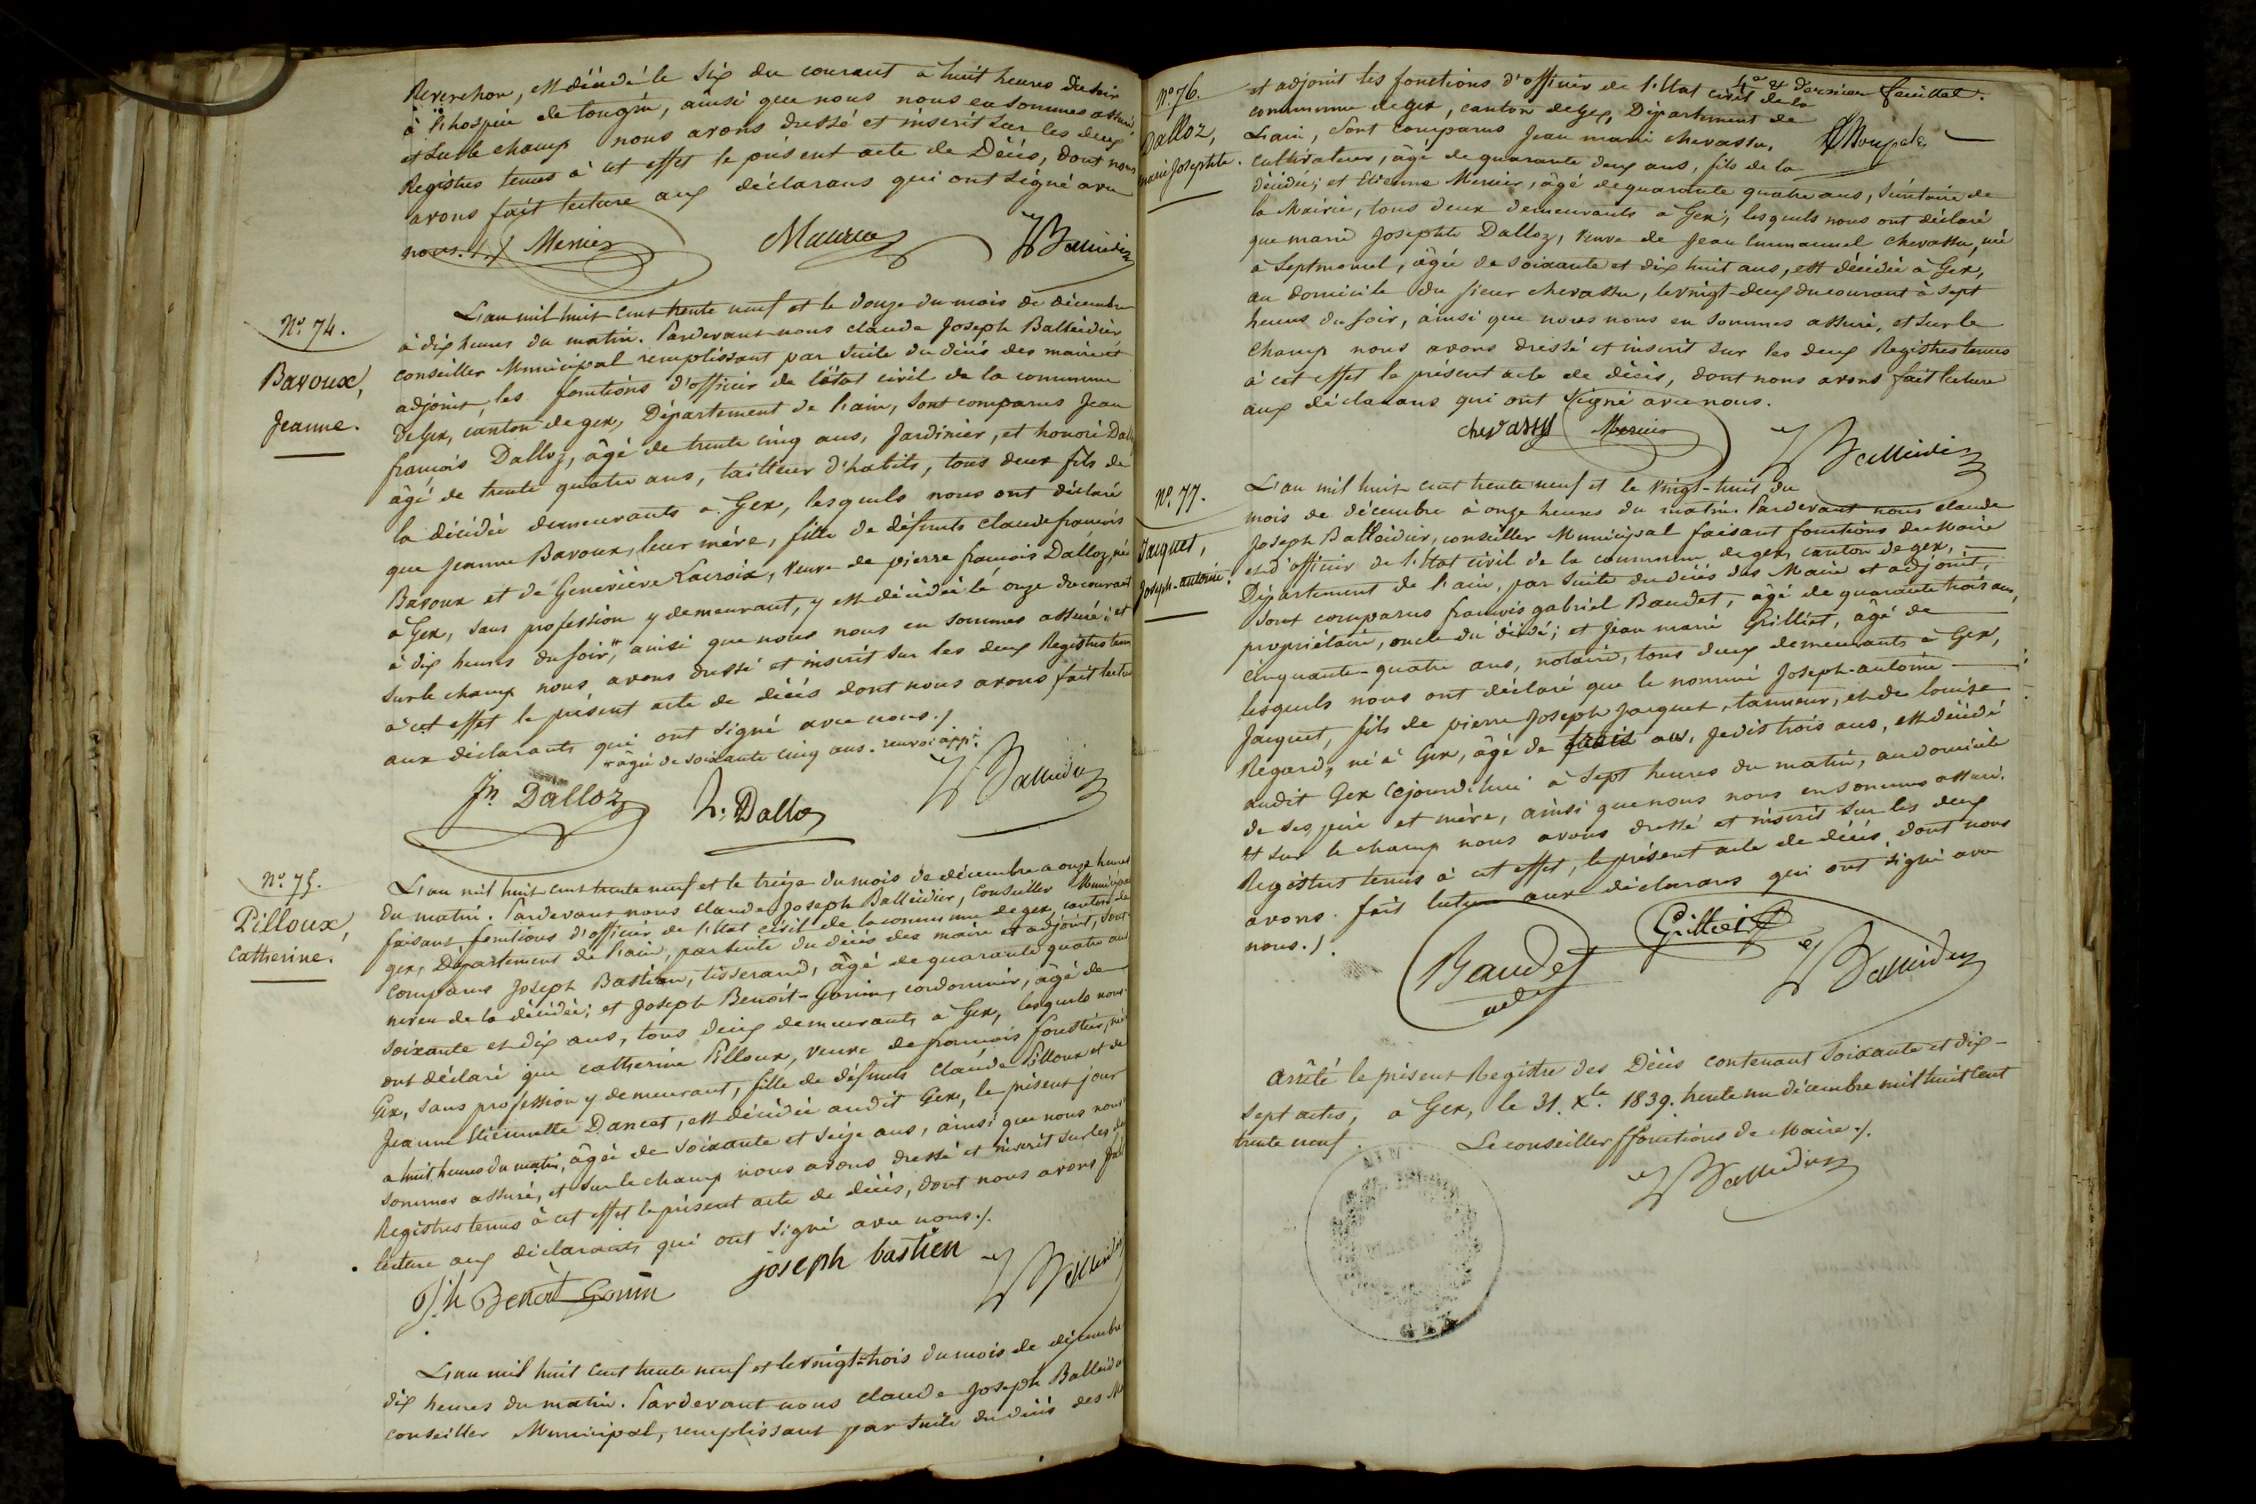 Reverchon, est décédé le six du courant à huit heures du soir
à l'hospice de tougin, ainsi que nous nous en sommes assuré,
et sur le champ nous avons dressé et inscrit sur les deux
Registres tenus à cet effet le présent acte de Décès, dont nous
avons fait lecture aux déclarans qui ont signé avec
nous ./.
Mercier
Ballaidier
N° 74.
Bavoux,
Jeanne.
L'an mil huit cent trente neuf et le douze du mois de décembre
à dix heures du matin. Pardevant nous claude Joseph Balleidier
conseiller Municipal remplissant par suite du décès des maire et
adjoint, les fonctions d'officier de l'état civil de la commune
de Gex, canton de gex, Département de l'ain, sont comparus Jean
françois Dalloz, âgé de trente cinq ans, Jardinier, et honoré Dalloz
âgé de trente quatre ans, tailleur d'habits, tous deux fils de
la décédée demeurants à Gex, lesquels nous ont déclaré
que Jeanne Bavoux, leur mère, fille de défunts claude françois
Bavoux et de Geneviève Lacroix, veuve de pierre françois Dalloz, née
à Gex, sans profession y demeurant, y est décédée le onze du courant
à dix heures du soir, " ainsi que nous nous en sommes assuré; et
sur le champ nous avons dressé et inscrit sur les deux Registres tenus
à cet effet le présent acte de décès dont nous avons fait lecture
aux déclarants qui ont signé avec nous ./.
" âgée de soixante cinq ans. renvoi app.é
Jn Dalloz
h: Dalloz
Balleidier
N° 75.
Pilloux,
Catherine.
L'an mil huit cent trente neuf et le treize du mois de décembre a onze heures
du matin. Pardevant nous claude Joseph Balleidier, Conseiller Municipal
faisant fonctions d'officier de l'état civil de la commune de gex, canton de
gex, Département de l'ain, par suite du décès des maire et adjoint, sont
comparus Joseph Bastian, tisserand, âgé de quarante quatre ans
neveu de la décédée; et Joseph Benoit-Gonin, cordonnier, âgé de
soixante et dix ans, tous deux demeurants à Gex, lesquels nous
ont déclaré que catherine Pilloux, veuve de françois forestier, née
Gex, sans profession y demeurant, fille de défunts claude Pilloux et de
Jeanne Etiennette Dancet, est décédée audit Gex, le présent jour
a huit heures du matin, âgée de soixante et seize ans, ainsi que nous nous
sommes assuré, et sur le champ nous avons dressé et inscrit sur les
Registres tenus à cet effet le présent acte de décès, dont nous avons fait
lecture aux déclarants qui ont signé avec nous ./.
Jh Benoit Gonin
joseph bastien
Balleidier
L'an mil huit cent trente neuf et le vingt-trois du mois de décembre
dix heures du matin. Pardevant nous claude Joseph Balleidier
conseiller Municipal, remplissant par suite du décès des
4e & dernier feuillet.
N° 76.
Dalloz,
marie Josephte.
et adjoint les fonctions d'officier de l'état civil de la
commune de gex, canton de Gex, Département de
L'ain, sont comparus Jean marie chevassu,
cultivateur, âgé de quarante deux ans, fils de la
décédée; et Etienne Mercier, âgé de quarante quatre ans, secrétaire de
la Mairie, tous deux demeurants à Gex; lesquels nous ont déclaré
que marie Josephte Dalloz, veuve de Jean Emmanuel chevassu, née
à Septmoncel, âgée de soixante et dix huit ans, est décédée à Gex,
au domicile du sieur chevassu, le vingt-deux du courant à sept
heures du soir, ainsi que nous nous en sommes assuré, et sur le
champ nous avons dressé et inscrit sur les deux Registres tenus
à cet effet le présent acte de décès, dont nous avons fait lecture
aux déclarans qui ont signé avec nous.
chevassu
Mercier
Balleidier
N° 77.
Jacquet,
Joseph-antoine.
L'an mil huit cent trente neuf et le vingt-huit du
mois de décembre à onze heures du matin. Pardevant nous claude
Joseph Balleidier, conseiller Municipal faisant fonctions de Maire
et d'officier de l'état civil de la commune de gex, canton de gex,
Département de l'ain, par suite du décès des Maire et adjoint,
sont comparus françois gabriel Baudet, âgé de quarante trois ans,
propriétaire, oncle du décédé; et Jean marie Grilliet, âgé de
cinquante-quatre ans, notaire, tous deux demeurants à Gex,
lesquels nous ont déclaré que le nommé Joseph-antoine
Jacquet, fils de pierre Joseph Jacquet, tanneur, et de louise
Regard, né à Gex, âgé de trois ans, je dis trois ans, est décédé
audit Gex cejourd'hui à sept heures du matin, au domicile
de ses père et mère, ainsi que nous nous en sommes assuré.
et sur le champ nous avons dressé et inscrit sur les deux
Registres tenus à cet effet, le présent acte de décès, dont nous
avons fait lecture aux déclarans qui ont signé avec
nous ./.
Baudet
Grilliet
Balleidier
Arrêté le présent Registre des Décès contenant soixante et dix-
sept actes, à Gex, le 31. Xbre. 1839. trente un décembre mil huit cent
trente neuf.
Le conseiller ffonctions de Maire ./.
Balleidier
GEX